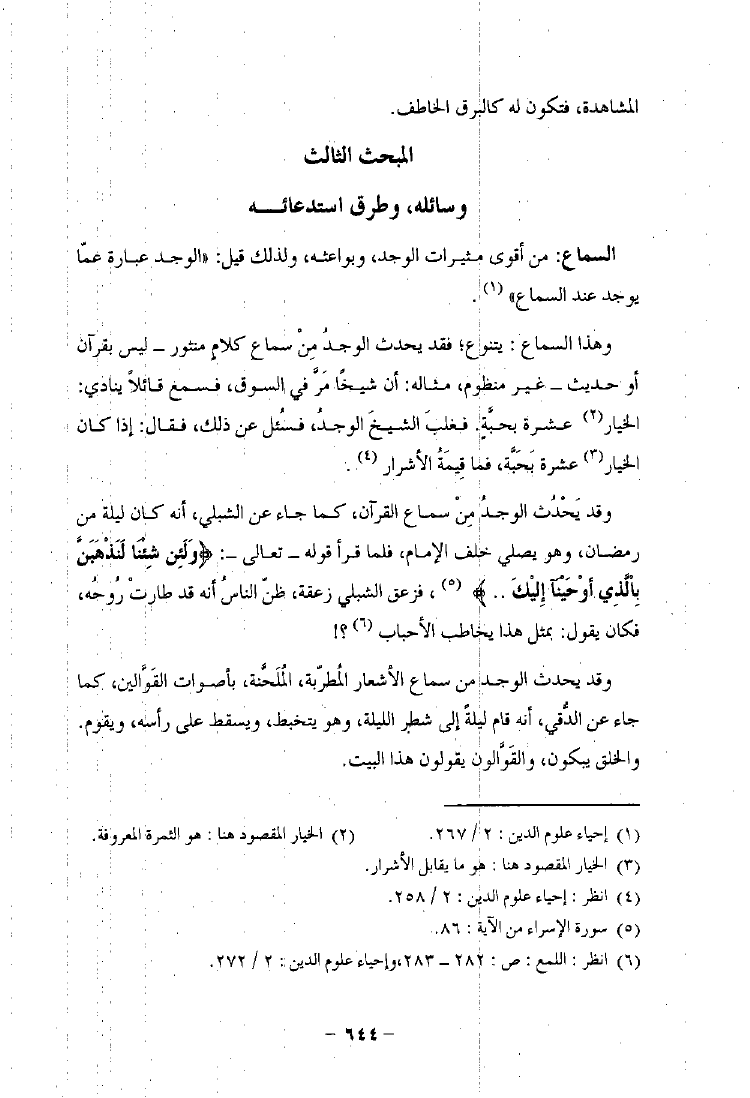 المشاهدة، فتكون له كالبرق الخاطف.
المبحث الثالث
وسائله، وطرق استدعائـــه
السماع: من أقوى مثيرات الوجد، وبواعثه، ولذلك قيل: «الوجد عبارة عمّا
يوجد عند السماع» (١).
وهذا السماع : يتنوع؛ فقد يحدث الوجدُ مِنْ سماع كلامٍ منثور ــ ليس بقرآن
أو حديث ــ غير منظوم، مثاله: أن شيخًا مَرَّ في السوق، فسمع قائلاً ينادي:
الخيار(٢) عشرة بحبَّةٍ. فغلبَ الشيخَ الوجدُ، فسُئل عن ذلك، فقال: إذا كان
الخيار(٣) عشرة بَحَبَّة، فما قيمَةُ الأشرار (٤) .
وقد يَحْدُث الوجدُ مِنْ سماع القرآن، كما جاء عن الشبلي، أنه كان ليلة من
رمضان، وهو يصلي خلف الإمام، فلما قرأ قوله ــ تعالى ــ: ﴿وَلَئِن شِئْنَا لَنَذْهَبَنَّ
بِالَّذِي أَوْحَيْنَآ إِلَيْكَ .. ﴾ (٥) ، فزعق الشبلي زعقة، ظنّ الناسُ أنه قد طارتْ رُوحُه،
فكان يقول: بمثل هذا يخاطب الأحباب (٦) ؟!
وقد يحدث الوجد من سماع الأشعار المُطربّة، المُلَحَّنة، بأصوات القَوَّالين، كما
جاء عن الدُّقي، أنه قام ليلةً إلى شطر الليلة، وهو يتخبط، ويسقط على رأسه، ويقوم.
والخلق يبكون، والقَوَّالون يقولون هذا البيت.
(١) إحياء علوم الدين : ٢ / ٢٦٧. (٢) الخيار المقصود هنا : هو الثمرة المعروفة.
(٣) الخيار المقصود هنا : هو ما يقابل الأشرار.
(٤) انظر : إحياء علوم الدين : ٢ / ٢٥٨.
(٥) سورة الإسراء من الآية : ٨٦.
(٦) انظر : اللمع : ص : ٢٨٢ ــ ٢٨٣،وإحياء علوم الدين : ٢ / ٢٧٢.
– ٦٤٤ –